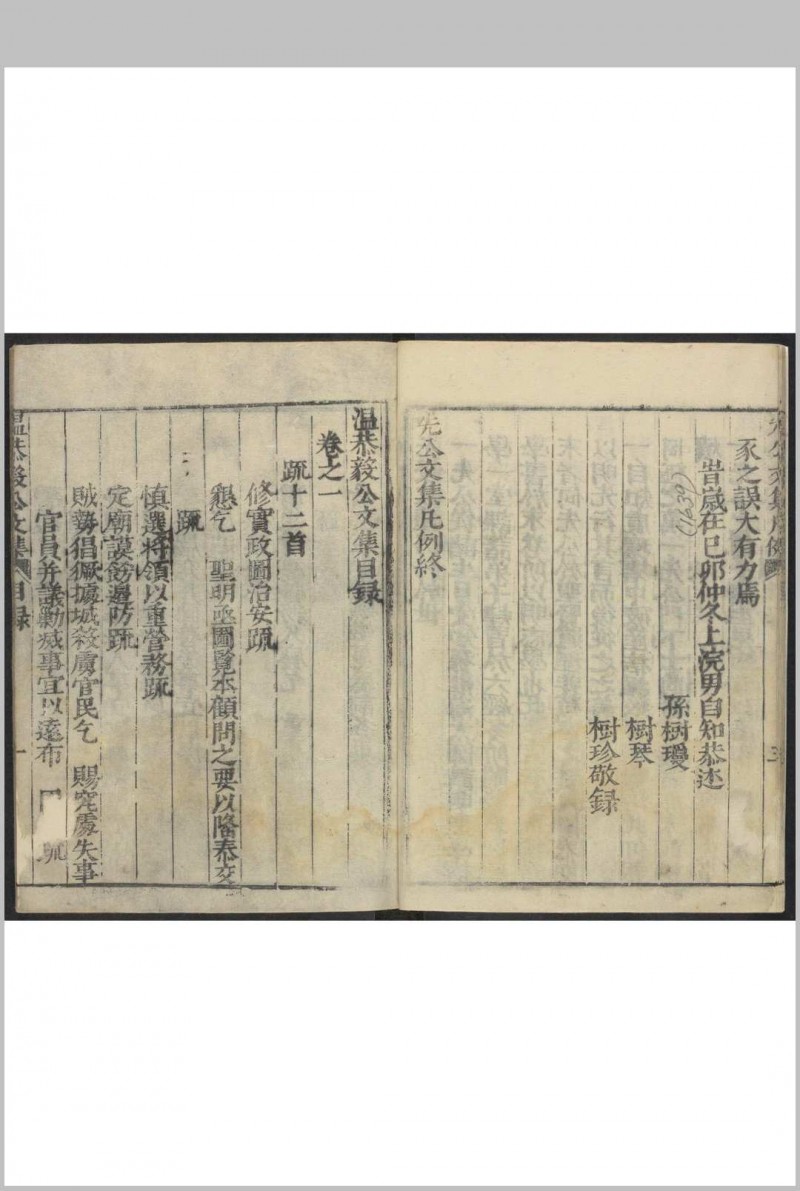 豕之誤大有力焉
昔歲在己卯仲冬上浣男自知恭述
(1639)
孫樹瓊
樹琴
樹珍敬録
先公文集凡例終
温恭毅公文集目録
卷之一
疏十二首
修實政圖治安疏
懇乞　聖明亟圖覧本顧問之要以隆泰交
疏
慎選將領以重營務疏
定廟謨飭邊防疏
賊勢猖獗據城殺虜官民乞　賜究處失事
官員并議勦滅事宜以遠布
疏
温恭毅公文集　目録　一